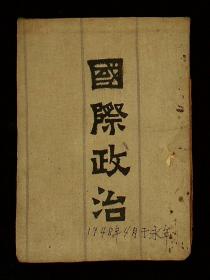 國際政治
1948年4月于永年